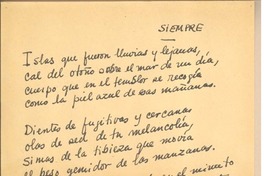 SIEMPRE
Islas que fueron lluvias y lejanas,
cal del otoño sobre el mar de un día,
cuerpo que en el temblor se recogía
como la piel azul de esas mañanas.
Dientes de fugitivas y cercanas
olas de sed de tu melancolía,
simas de la tibieza que movía
el beso gemidor de las manzanas.
el minuto